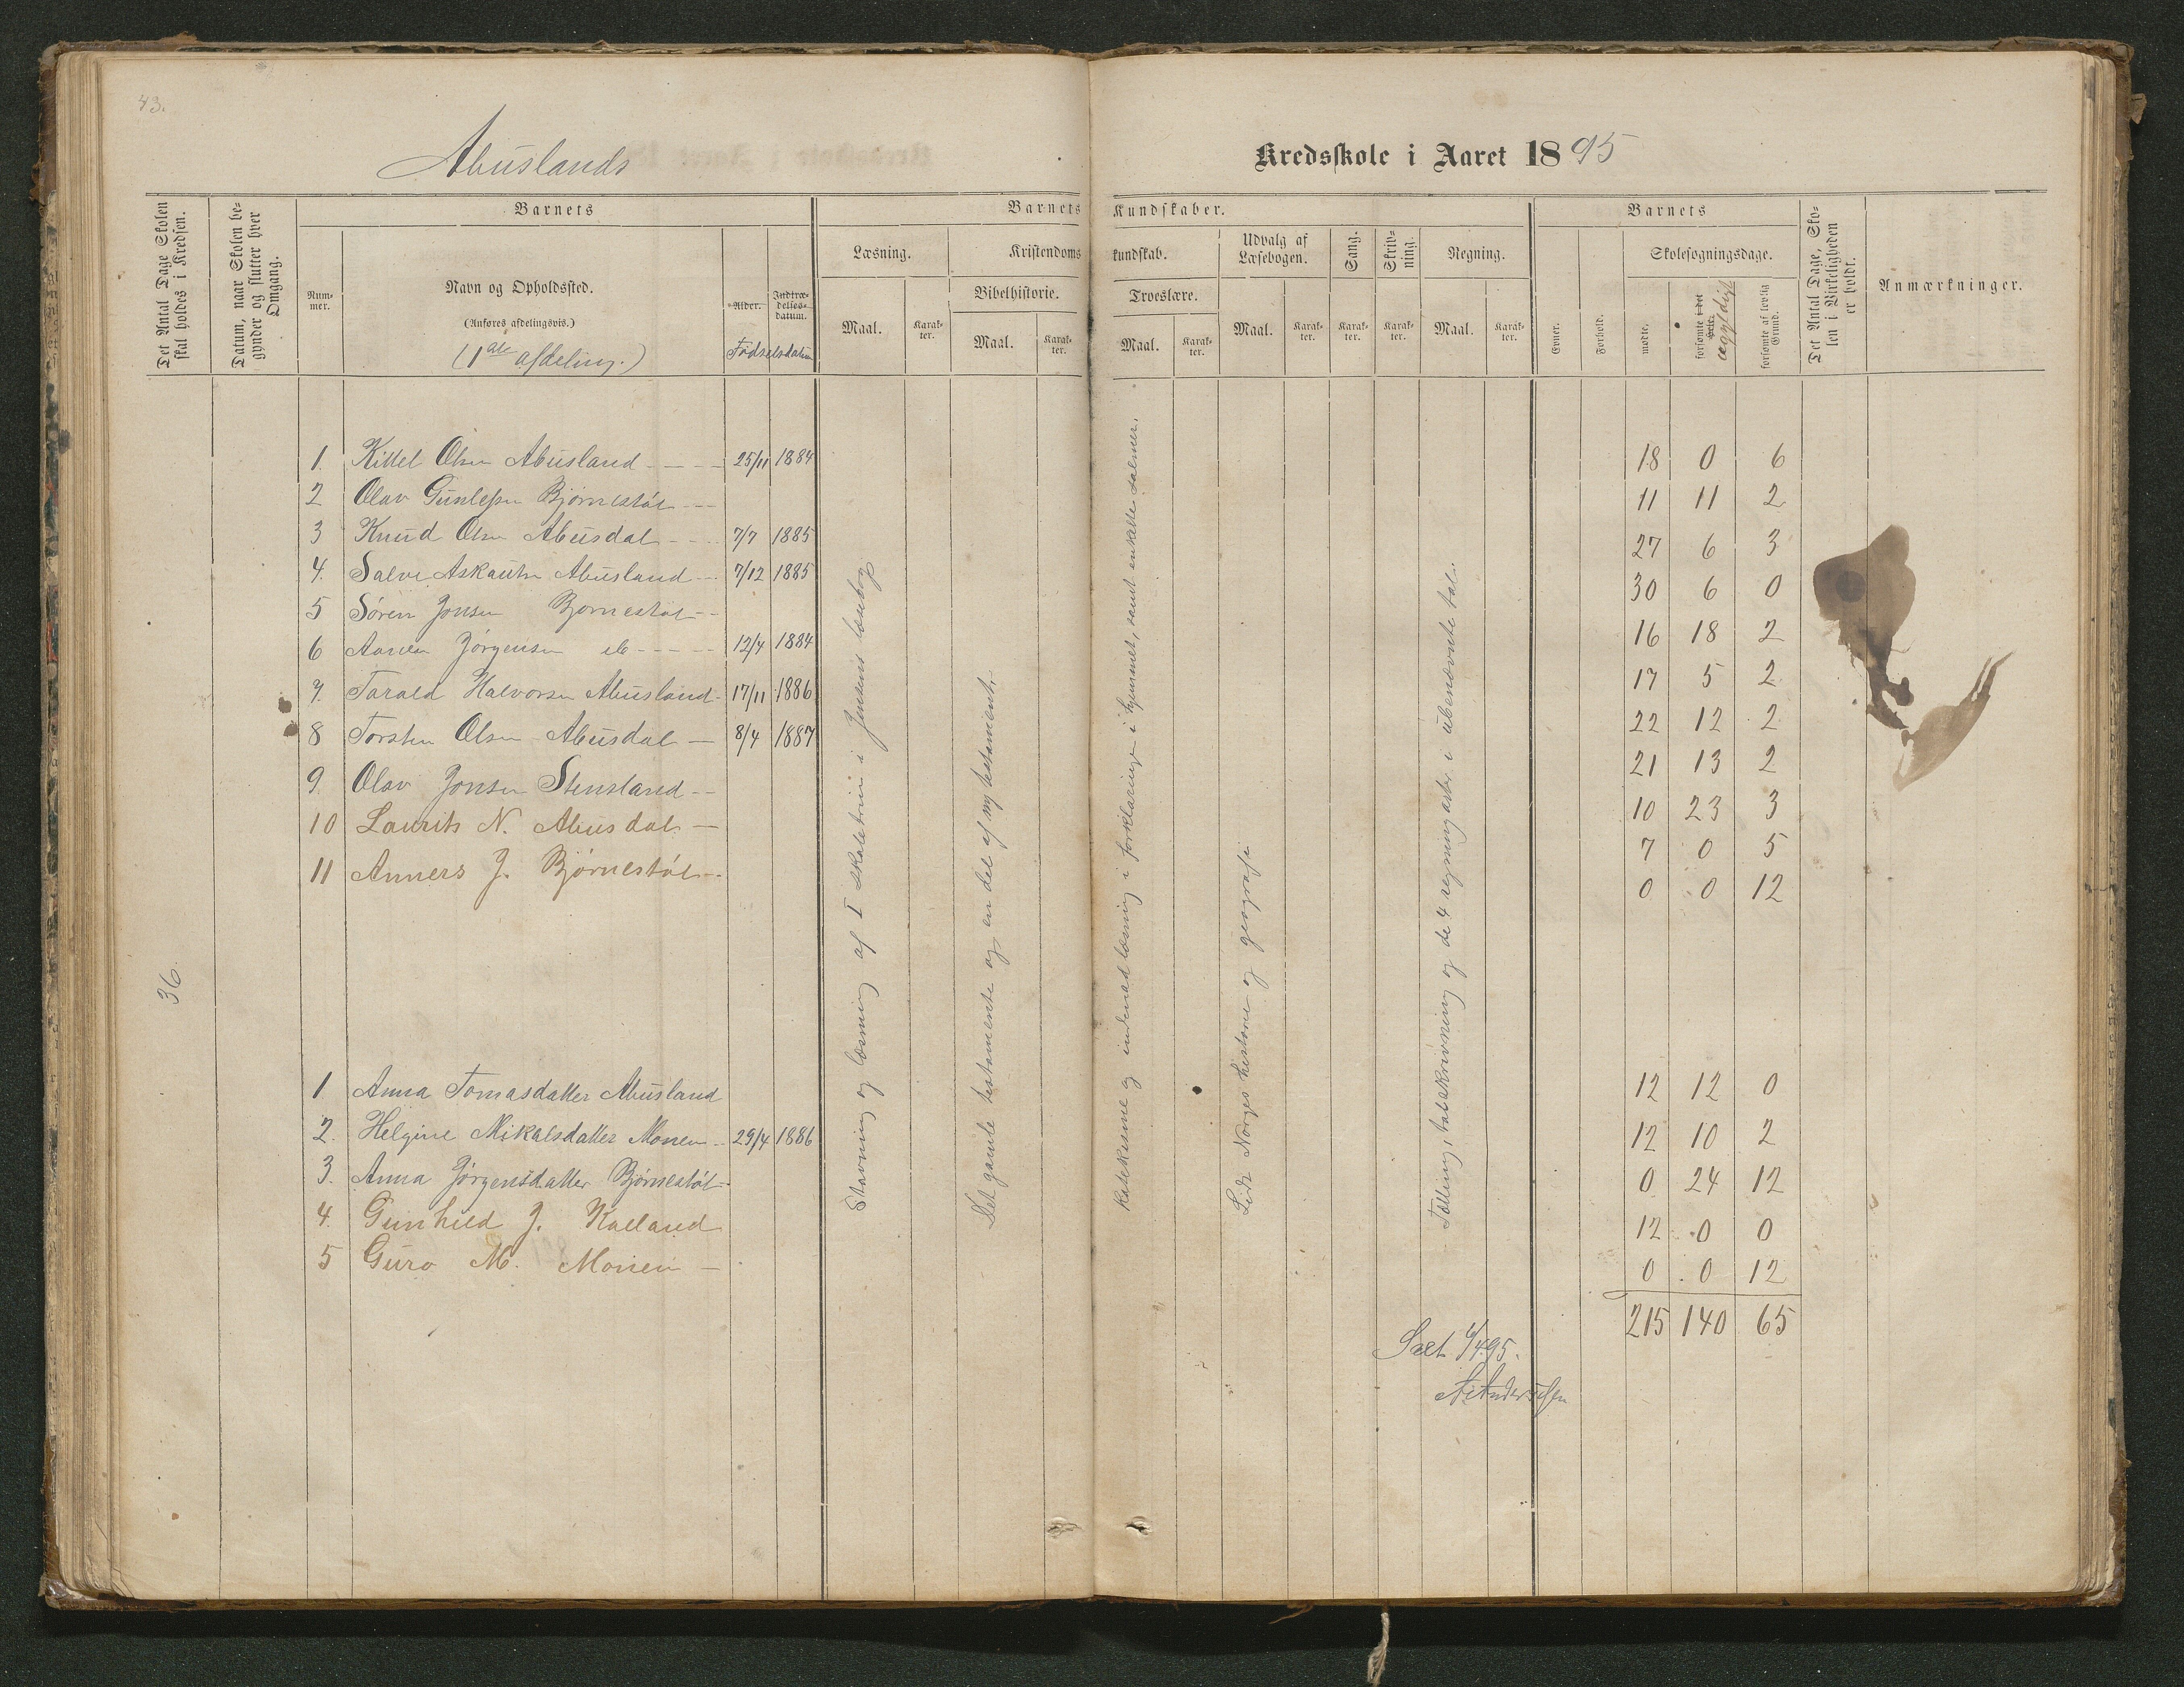 43.
Abuslands
Kredsskole i Aaret 1895
Det Antal Dage Skolen skal holdes i Kredsen.
Datum, naar Skolen begynder og slutter hver Omgang.
Barnets
Barnets Kundskaber.
Barnets
Det Antal Dage, Skolen i Virkeligheden er holdt.
Anmærkninger.
Nummer.
Navn og Opholdssted.
(Anføres afdelingsvis.)
(1ste afdeling.)
Alder.
Indtrædelsesdatum.
Fødselsdatum
Læsning.
Kristendomskundskab.
Udvalg af Læsebogen.
Sang.
Skrivning.
Regning.
Evner.
Forhold.
Skolesøgningsdage.
Bibelhistorie.
Troeslære.
Maal. Karakter. Maal. Karakter. Maal. Karakter. Maal. Karakter. Karakter. Karakter. Maal. Karakter.
mødte.
forsømte i det Hele.
ugyldigt
forsømte af lovlig Grund.
36.
1. Kittel Olsen Abusland 25/11 1884 18 0 6
2 Olav Gunlefsen Bjørnestøl 11 11 2
3 Knud Olsen Abusdal 7/7 1885 27 6 3
4. Salve Askautsen Abusland 7/12 1885 30 6 0
5 Søren Jonsen Bjørnestøl 16 18 2
6 Jørgensen 12/4 1884 17 5 2
7. Tarald Halvorsen Abusland 17/11 1886 22 12 2
8 Torsten Olsen Abusdal 8/4 1887 21 13 2
9. Olav Jonsen Stensland 10 23 3
10 Laurits N. Abusdal 7 0 5
11 Anners J. Bjørnestøl 0 0 12
1 Anna Tomasdatter Abusland 12 12 0
2. Helgine Mikalsdatter Monen 29/4 1886 12 10 2
3. Anna Jørgensdatter Bjørnestøl 0 24 12
4. Gunhild J. Kalland 12 0 0
5 Guro M. Monen 0 0 12
215 140 65
Stavning og læsning af I skoletrin i Jensens læsebog
Det gamle testamente og en del af ny testament.
Katekesme og indenadlæsning i forklaringe i hjemmet, samt enkelte salmer.
Lidt Norges historie og geografi
Tælling, talskrivning og de 4 regningarter i ubenævnte tal.
Sæt 6/4 95.